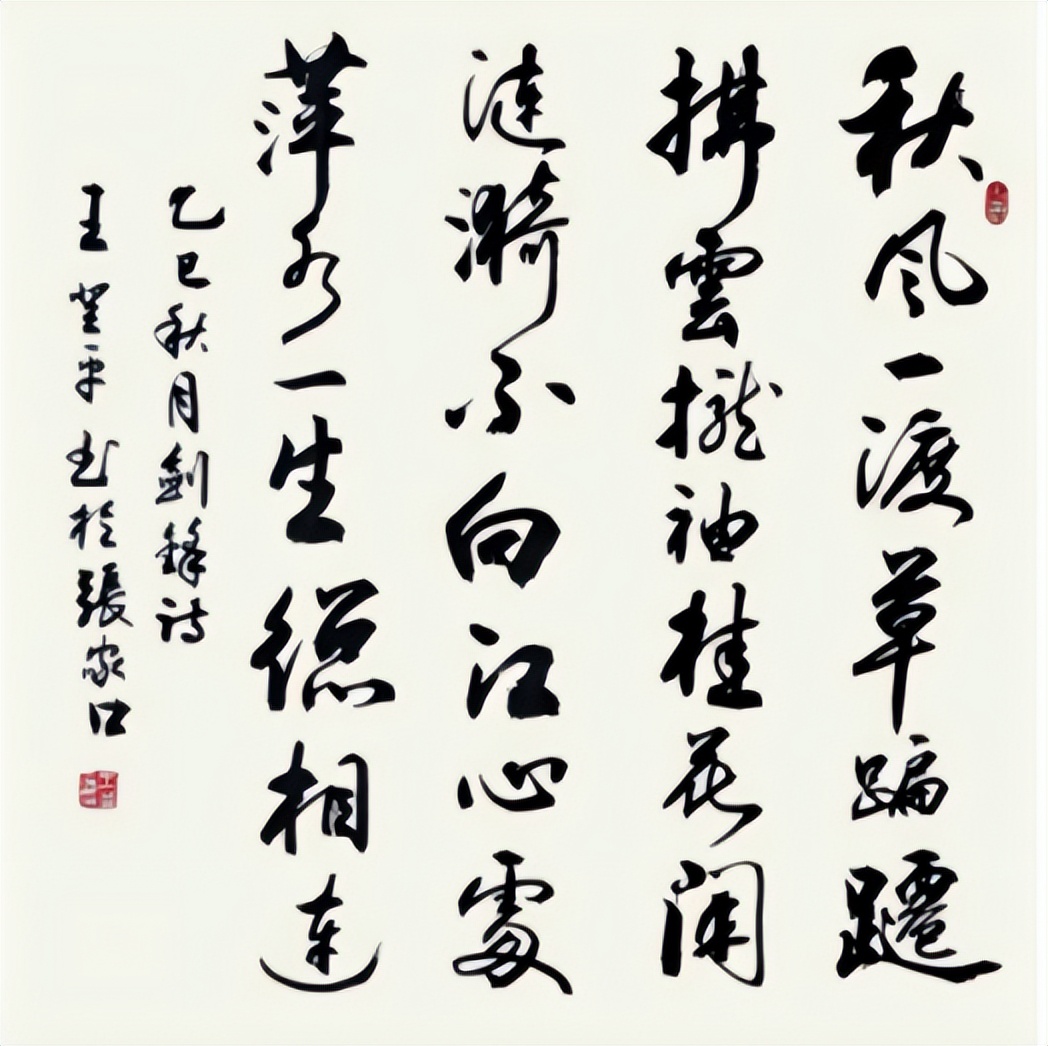 秋风一渡草蹁躚
拂雲攏袖桂花開
漣漪不向江心處
萍水一生總相連
乙巳秋月劍鋒詩
王 平书於張家口